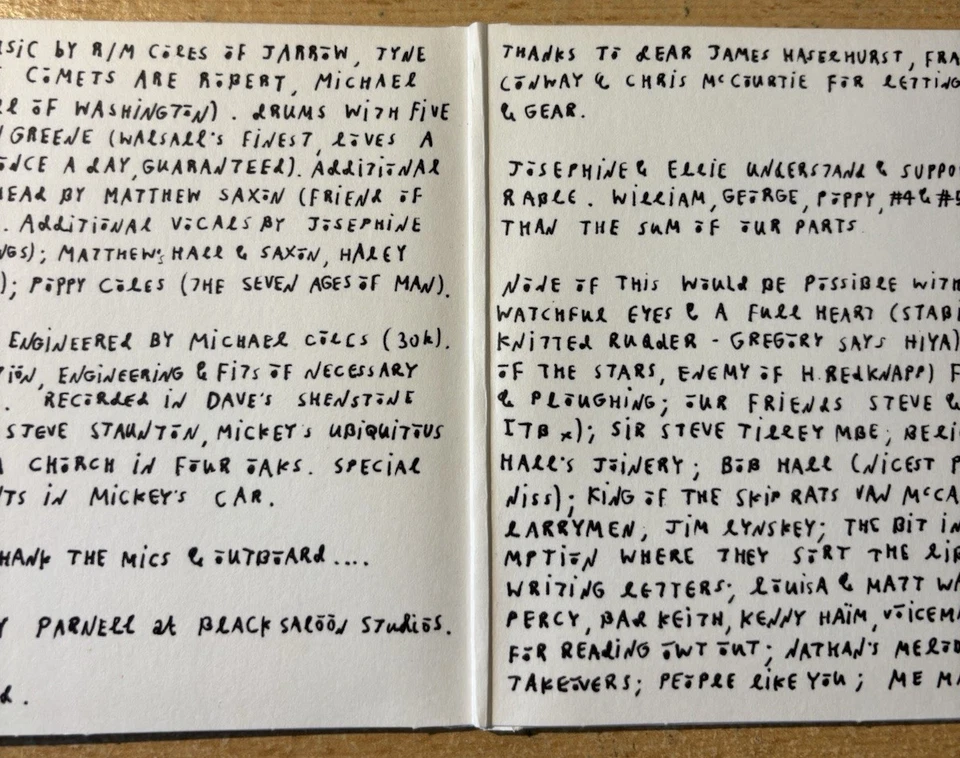 USIC BY R/M COLES OF JARROW, TYNE
COMETS ARE ROBERT, MICHAEL
LL OF WASHINGTON). DRUMS WITH FIVE
GREENE (WALSALL'S FINEST, LOVES A
ONCE A DAY, GUARANTEED). ADDITIONAL
HEAD BY MATTHEW SAXON (FRIEND OF
. ADDITIONAL VOCALS BY JOSEPHINE
NGS); MATTHEW'S HALL & SAXON, HALEY
); POPPY COLES (THE SEVEN AGES OF MAN).
ENGINEERED BY MICHAEL COLES (30K).
TION, ENGINEERING & FITS OF NECESSARY
. RECORDED IN DAVE'S SHENSTONE
STEVE STAUNTON, MICKEY'S UBIQUITOUS
A CHURCH IN FOUR OAKS. SPECIAL
TS IN MICKEY'S CAR.
HANK THE MICS & OUTBOARD....
Y PARNELL at BLACK SALOON STUDIOS.
D.
THANKS TO DEAR JAMES HASELHURST, FRA
CONWAY & CHRIS McCOURTIE FOR LETTING
& GEAR.
JOSEPHINE & ELLIE UNDERSTAND & SUPPO
RABLE. WILLIAM, GEORGE, POPPY, #4 & #5
THAN THE SUM OF OUR PARTS
NONE OF THIS WOULD BE POSSIBLE WITH
WATCHFUL EYES & A FULL HEART (STABI
KNITTED RUDDER - GREGORY SAYS HIYA)
OF THE STARS, ENEMY OF H.REDKNAPP) F
& PLOUGHING; OUR FRIENDS STEVE &
ITB x); SIR STEVE TILLEY MBE; BELI
HALL'S JOINERY; BOB HALL (NICEST P
NISS); KING OF THE SKIP RATS VAN McCA
LARRYMEN, JIM LYNSKEY; THE BIT IN
MPTION WHERE THEY SORT THE LIB
WRITING LETTERS; LOUISA & MATT WA
PERCY, BAD KEITH, KENNY HAÏM, VOICEMA
FOR READING OWT OUT; NATHAN'S MELOD
TAKEOVERS; PEOPLE LIKE YOU; ME MA